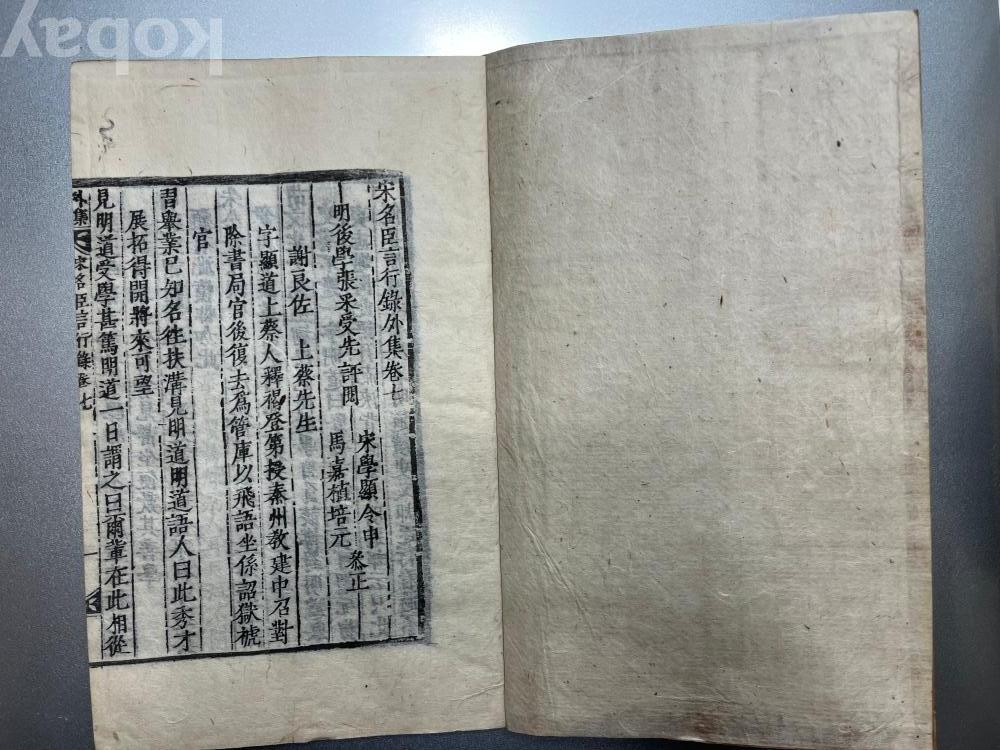 宋名臣言行錄外集卷七
明後學張采受先評閱
宋學顯令申
馬嘉植培元
叅正
謝良佐 上蔡先生
字顯道上蔡人釋褐登第授秦州教建中召對
除書局官後復去爲管庫以飛語坐係詔獄褫
官
習舉業已知名徃扶溝見明道明道語人曰此秀才
展拓得開將來可望
見明道受學甚篤明道一日謂之曰爾輩在此相從
外集 宋名臣言行錄卷七
kobay